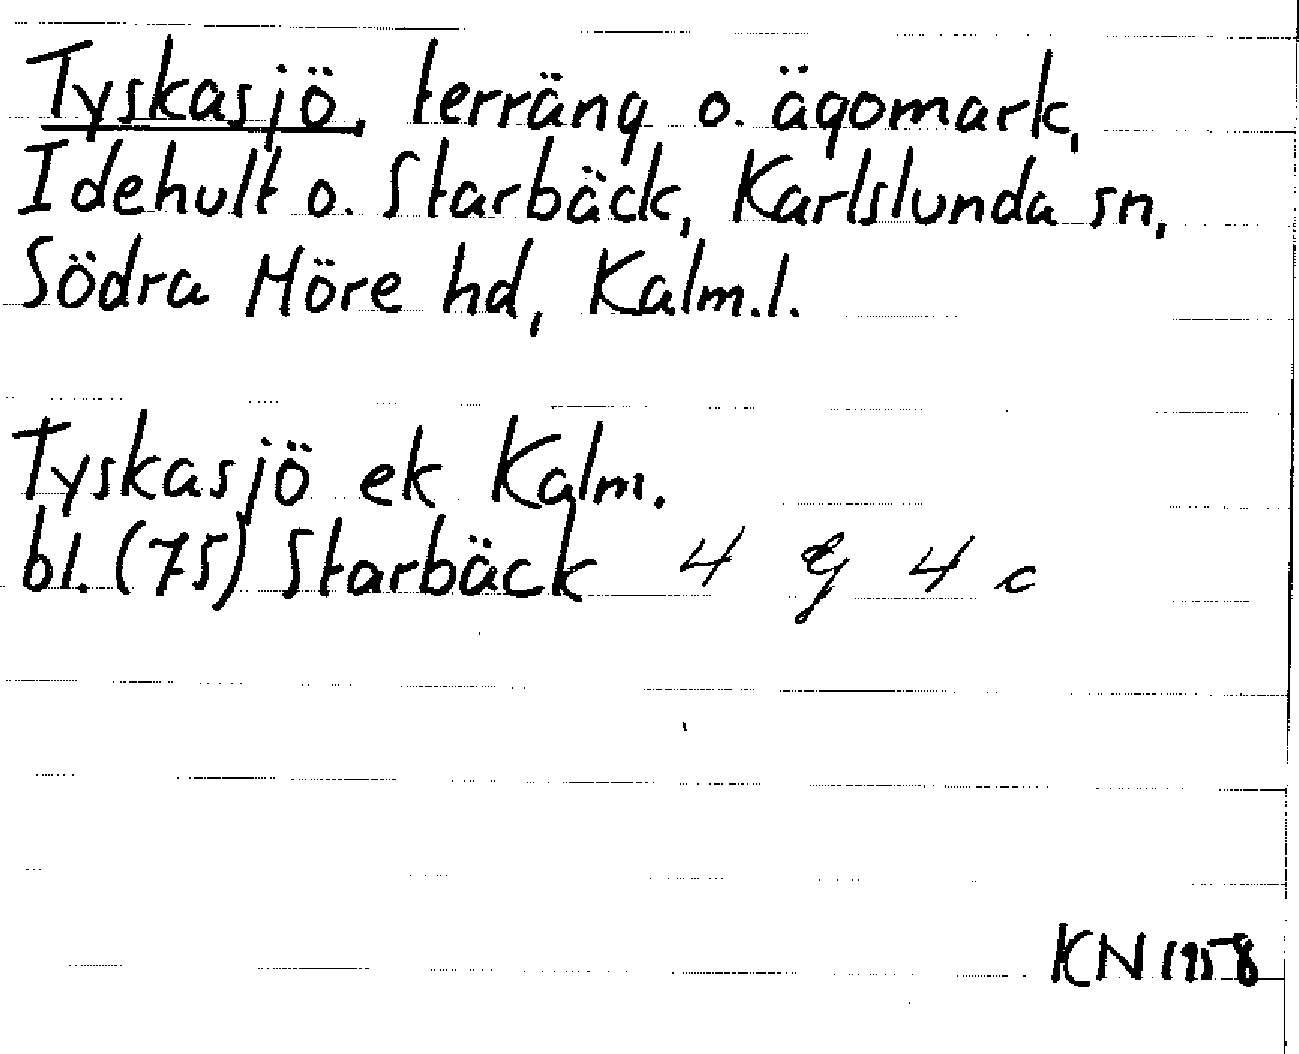 Tyskasjö, terräng o. ägomark,
Idehult o. Starbäck, Karlslunda sn,
Södra Möre hd, Kalm.l.
Tyskasjö ek Kalm.
bl. (75) Starbäck 4 g 4 c
KN 1958